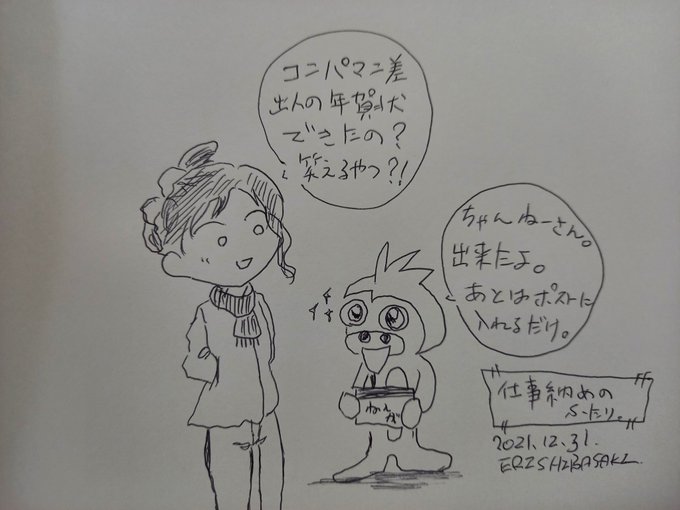 コニパマニ差
出人の年賀状
できたの？
笑えるやつ？！
ちゃんねーさん。
出来たよ。
あとはポストに
入れるだけ。
ねんが
仕事納めの
ふたり。
2021.12.31.
ERI SHIBASAKI